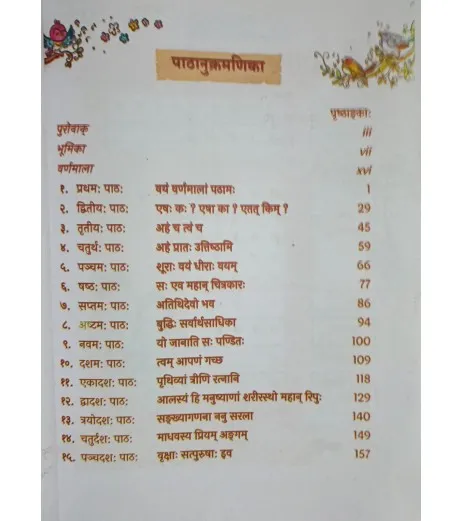 पाठानुक्रमणिका
पृष्ठाङ्काः
पुरोवाक् iii
भूमिका vii
वर्णमाला xvi
१. प्रथमः पाठः वयं वर्णमालां पठामः 1
२. द्वितीयः पाठः एषः कः ? एषा का ? एतत् किम् ? 29
३. तृतीयः पाठः अहं च त्वं च 45
४. चतुर्थः पाठः अहं प्रातः उत्तिष्ठामि 59
५. पञ्चमः पाठः शूराः वयं धीराः वयम् 66
६. षष्ठः पाठः सः एव महान् चित्रकारः 77
७. सप्तमः पाठः अतिथिदेवो भव 86
८. अष्टमः पाठः बुद्धिः सर्वार्थसाधिका 94
९. नवमः पाठः यो जानाति सः पण्डितः 100
१०. दशमः पाठः त्वम् आपणं गच्छ 109
११. एकादशः पाठः पृथिव्यां त्रीणि रत्नानि 118
१२. द्वादशः पाठः आलस्यं हि मनुष्याणां शरीरस्थो महान् रिपुः 129
१३. त्रयोदशः पाठः सङ्ख्यागणना ननु सरला 140
१४. चतुर्दशः पाठः माधवस्य प्रियम् अङ्गम् 149
१५. पञ्चदशः पाठः वृक्षाः सत्पुरुषाः इव 157